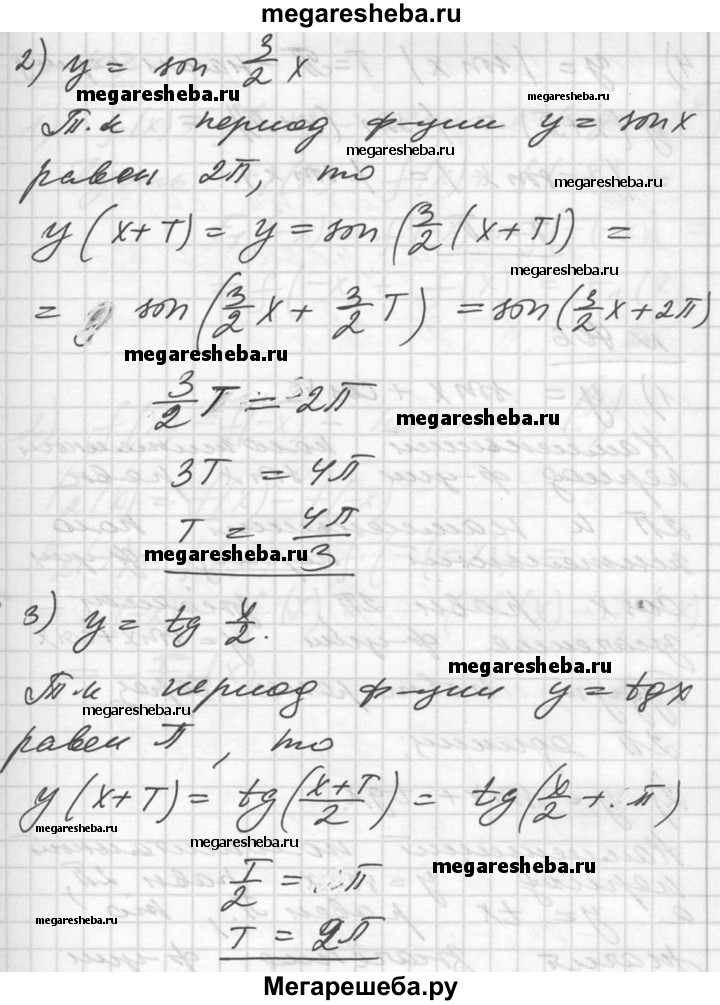 megaresheba.ru
2) y = sin 3/2 x
megaresheba.ru
megaresheba.ru
Т.к период ф-ции y = sin x
megaresheba.ru
равен 2π, то
megaresheba.ru
y(x+T) = y = sin(3/2(x+T)) =
megaresheba.ru
= sin(3/2 x + 3/2 T) = sin(3/2 x + 2π)
megaresheba.ru
3/2 T = 2π
megaresheba.ru
3T = 4π
T = 4π/3
megaresheba.ru
3) y = tg x/2.
megaresheba.ru
Т.к период ф-ции y = tg x
megaresheba.ru
равен π, то
y(x+T) = tg((x+T)/2) = tg(x/2 + π)
megaresheba.ru
megaresheba.ru
T/2 = π
megaresheba.ru
megaresheba.ru
T = 2π
Мегарешеба.ру